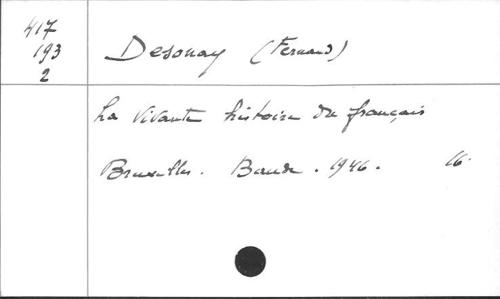 417
193
2
Desonay (Fernand)
La Vivante histoire du français
Bruxelles. Baude. 1946. 16.